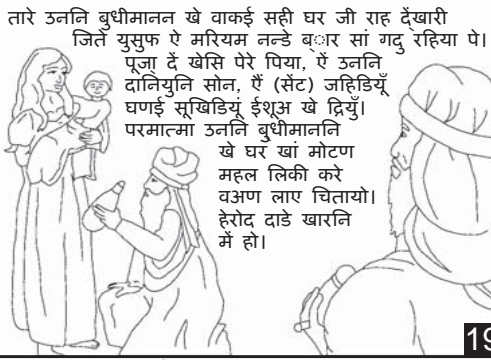 तारे उननि बुधीमानन खे वाकई सही घर जी राह देंखारी
जिते युसुफ ऐ मरियम नन्डे ब्ार सां गदु रहिया पे।
पूजा दें खेसि पेरे पिया, ऐं उननि
दानियुनि सोन, ऐं (सेंट) जहिडियूँ
घणई सूखिडियूं ईशूअ खे द्रियुँ।
परमात्मा उननि बुधीमाननि
खे घर खां मोटण
महल लिकी करे
वञण लाए चितायो।
हेरोद दाडे खारनि
में हो।
19